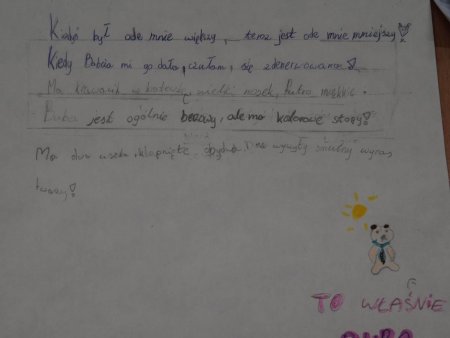 Kiedyś był ode mnie większy, teraz jest ode mnie mniejszy!
Kiedy Babcia mi go dała, czułam się zdenerwowana!
Ma krawacik w kotewki, wielki nosek, futro miękkie.
Buba jest ogólnie beżowy, ale ma kolorowe stopy!
Ma dwa uszka, klapnięte
smutny wyraz
twarzy!
TO WŁAŚNIE
BUBA